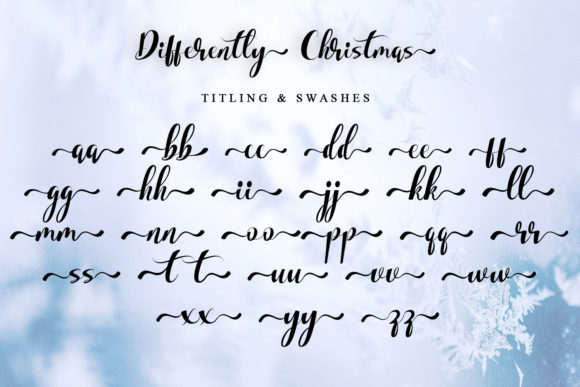 Differently Christmas
TITLING & SWASHES
aa bb cc dd ee ff
gg hh ii jj kk ll
mm nn oo pp qq rr
ss tt uu vv ww
xx yy zz